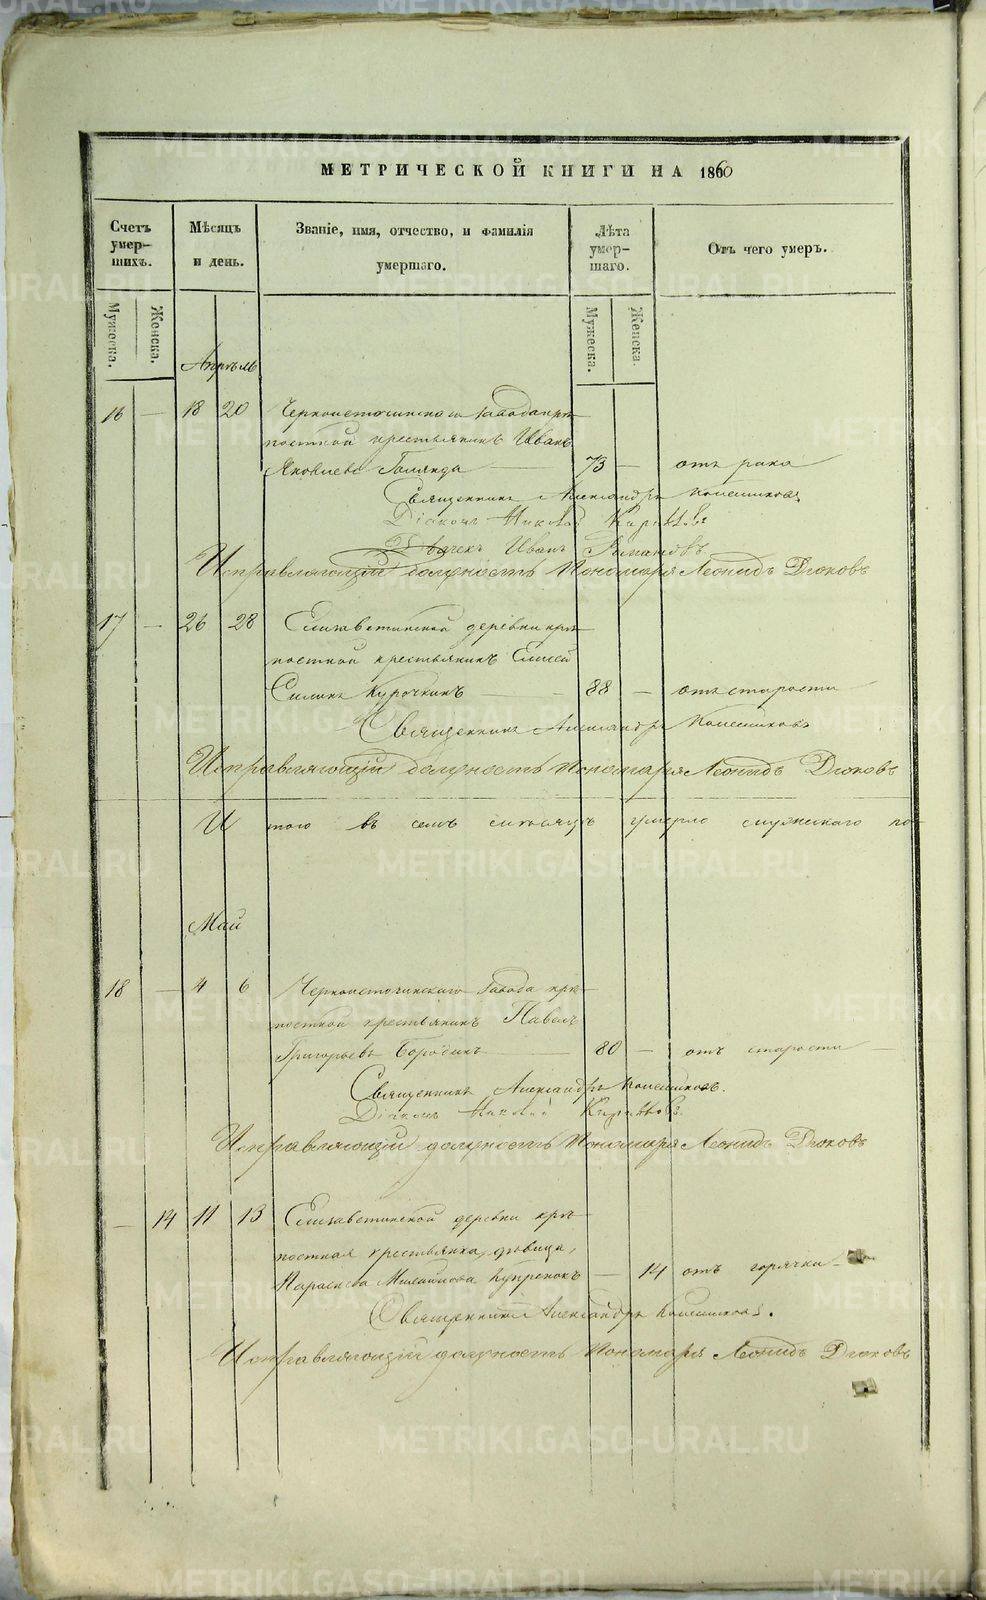 МЕТРИЧЕСКОЙ КНИГИ НА 1860
Счетъ умер-шихъ.
Мѣсяцъ и день.
Званіе, имя, отчество, и фамилія умершаго.
Лѣта умер-шаго.
Отъ чего умеръ.
Мужеска.
Женска.
Мужеска.
Женска.
Апрѣль
16 — 18 20 Черноисточинскаго завода крѣ-
постной крестьянинъ Иванъ
Яковлевъ — 73 — отъ рака
Священникъ Александръ
Діаконъ Николай
Дьячекъ Иванъ Романовъ
Исправляющій должность Пономаря Леонидъ Дюковъ
17 — 26 28 Елизаветинской деревни крѣ-
постной крестьянинъ Елисей
Силинъ Курочкинъ — 88 — отъ старости
Священникъ Александръ
Исправляющій должность Пономаря Леонидъ Дюковъ
Итого въ семъ мѣсяцѣ умерло мужескаго по-
Май
18 — 4 6 Черноисточинскаго завода крѣ-
постной крестьянинъ Павелъ
Григорьевъ Бородинъ — 80 — отъ старости —
Священникъ Александръ
Діаконъ Николай
Исправляющій должность Пономаря Леонидъ Дюковъ
— 14 11 13 Елизаветинской деревни крѣ-
постная крестьянка, дѣвица,
— 14 отъ горячки —
Священникъ Александръ
Исправляющій должность Пономаря Леонидъ Дюковъ
METRIKI.GASO-URAL.RU